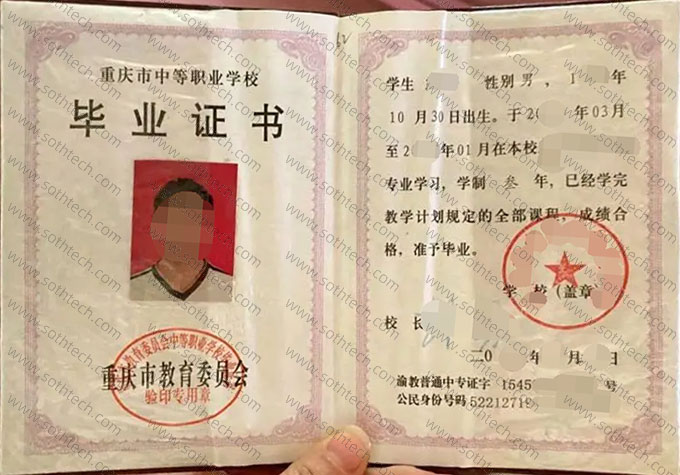 重庆市中等职业学校
毕业证书
市教育委员会中等职业学校
重庆市教育委员会
验印专用章
学生 性别 男， 1 年
10 月 30 日出生。于 2 年 03 月
至 2 年 01 月在本校
专业学习，学制 叁 年，已经学完
教学计划规定的全部课程，成绩合
格，准予毕业。
学 校（盖章
校 长
二 年 月 日
渝教普通中专证字 1545 号
公民身份号码 52212719
www.sothtech.com